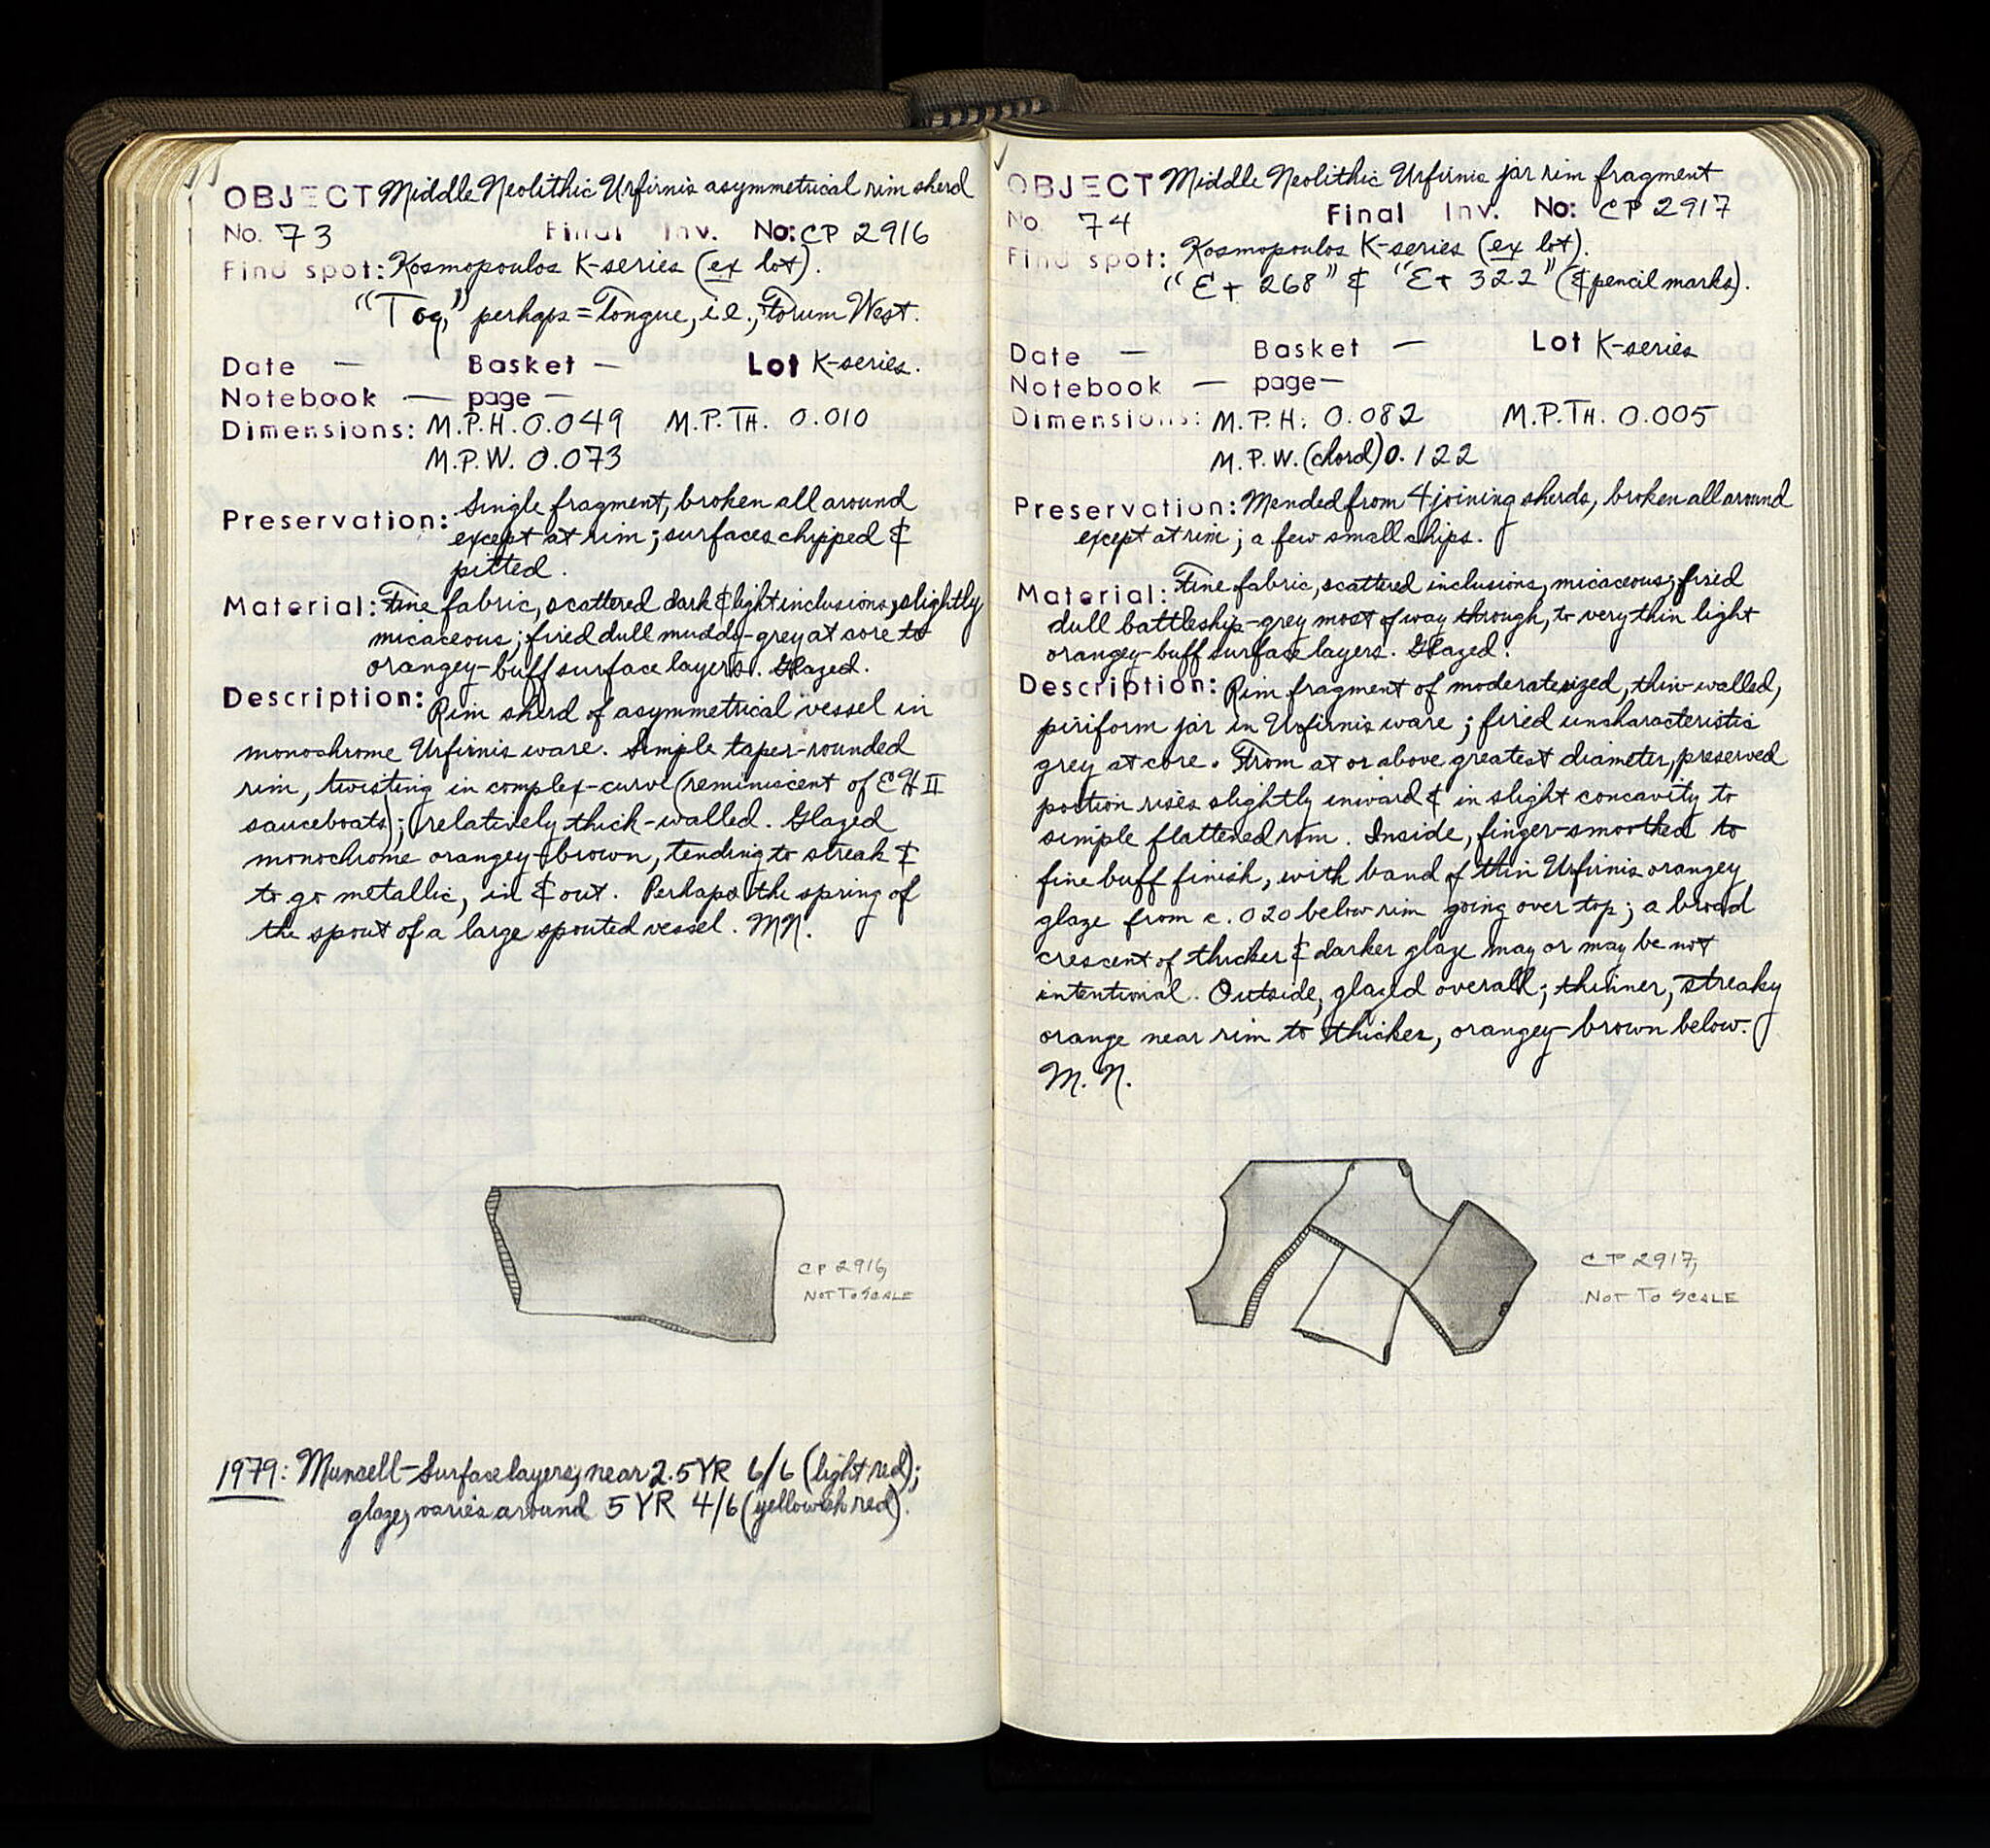 OBJECT Middle Neolithic Urfirnis asymmetrical rim sherd
No. 73 Final Inv. No: CP 2916
Find spot: Kosmopoulos K-series (ex lot).
perhaps = Tongue, i.e., Forum West.
Date — Basket — Lot K-series.
Notebook — page —
Dimensions: M.P.H. 0.049 M.P.TH. 0.010
M.P.W. 0.073
Preservation: Single fragment, broken all around
except at rim; surfaces chipped &
pitted.
Material: Fine fabric, scattered dark & light inclusions, slightly
micaceous; fired dull muddy-grey at core to
orangey-buff surface layers. Glazed.
Description: Rim sherd of asymmetrical vessel in
monochrome Urfirnis ware. Simple taper-rounded
rim, twisting in complex-curve (reminiscent of EH II
sauceboats); relatively thick-walled. Glazed
monochrome orangey-brown, tending to streak &
to go metallic, in & out. Perhaps the spring of
the spout of a large spouted vessel. MN.
CP 2916,
NOT TO SCALE
1979: Munsell - Surface layers, near 2.5 YR 6/6 (light red);
glaze, varies around 5 YR 4/6 (yellowish red).
✓
OBJECT Middle Neolithic Urfirnis jar rim fragment
No. 74 Final Inv. No: CP 2917
Find spot: Kosmopoulos K-series (ex lot).
"Ε+ 268" & "Ε+ 322" (& pencil marks).
Date — Basket — Lot K-series
Notebook — page —
Dimensions: M.P.H. 0.082 M.P.TH. 0.005
M.P.W. (chord) 0.122
Preservation: Mended from 4 joining sherds, broken all around
except at rim; a few small chips.
Material: Fine fabric, scattered inclusions, micaceous; fired
dull battleship-grey most of way through, to very thin light
orangey-buff surface layers. Glazed.
Description: Rim fragment of moderate sized, thin-walled,
piriform jar in Urfirnis ware; fired uncharacteristic
grey at core. From at or above greatest diameter, preserved
portion rises slightly inward & in slight concavity to
simple flattened rim. Inside, finger-smoothed to
fine buff finish, with band of thin Urfirnis orangey
glaze from c. 020 below rim going over top; a broad
crescent of thicker & darker glaze may or may be not
intentional. Outside, glazed overall; thinner, streaky
orange near rim to thicker, orangey-brown below.
M.N.
CP 2917,
NOT TO SCALE